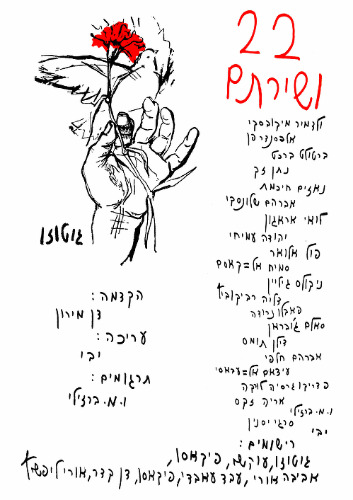 22
ושירתם
ולדמיר מיקובסקי
אלכסנדר פן
ברטולט ברכט
נתן זך
נאזים חיכמת
אברהם שלונסקי
לואי אראגון
יהודה עמיחי
פול אלואר
סמיח אל-קאסם
ניקולס גיליין
דליה רביקוביץ
פאבלו נרודה
סאלם ג'ובראן
דילן תומס
אברהם חלפי
עיצאם אל-עבאסי
פדריקו גרסיה לורקה
אריה זקס
ו.מ.ברזילי
סרגי יסנין
יבי
גוטוזו
הקדמה:
דן מירון
עריכה:
יבי
תרגומים:
ו.מ.ברזילי
רישומים:
גוטוזו, פיקאסו,
אביבה אורי, עבד עאבדי, פיקאסו, דן קדר, אורי ליפשיץ